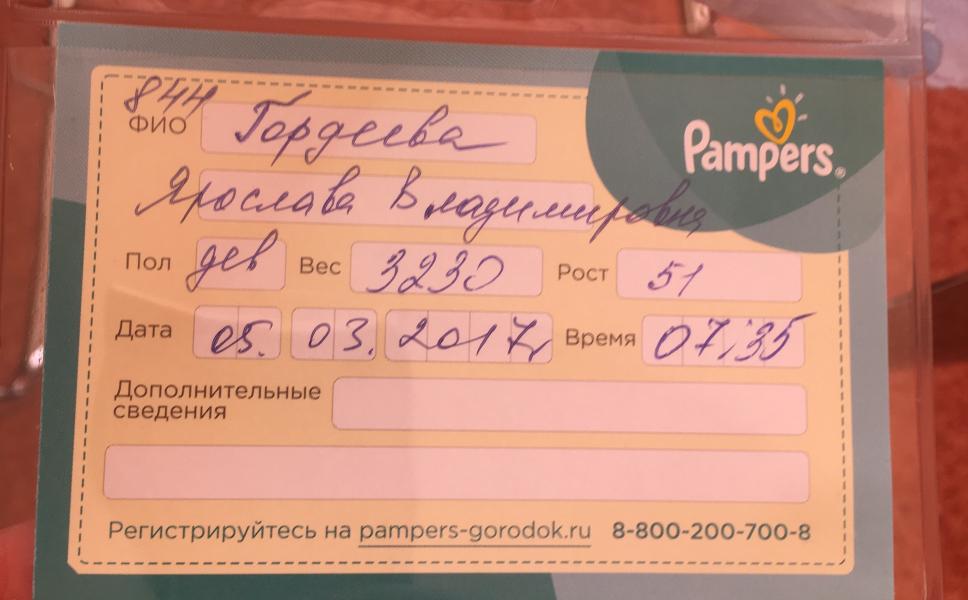 844
Pampers®
ФИО Гордеева
Ярослава Владимировна
Пол дев Вес 3230 Рост 51
Дата 05. 03. 2017г Время 07:35
Дополнительные
сведения
Регистрируйтесь на pampers-gorodok.ru 8-800-200-700-8